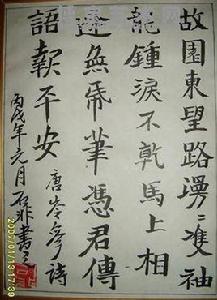 故園東望路漫漫雙袖
龍鍾淚不乾馬上相
逢無紙筆憑君傳
語報平安 唐岑參詩
丙戌年元月石非書